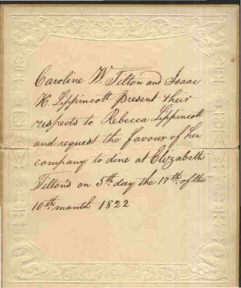 Caroline W. Tilton and Isaac
K. Lippincott Present their
respects to Rebecca Lippincott
and request the favour of her
company to dine at Elizabeth
Tilton's on 5th day the 17th of the
10th month 1822